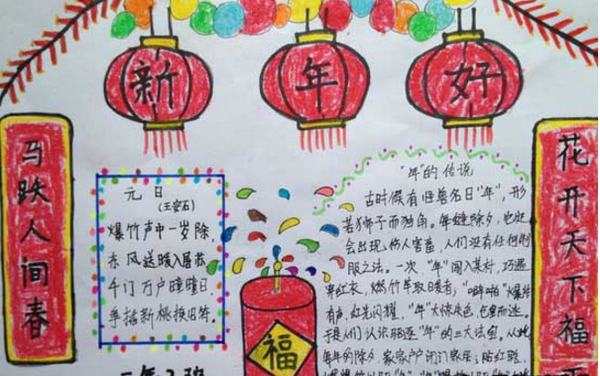 新年好
马跃人间春
元日
(王安石)
爆竹声中一岁除,
东风送暖入屠苏
千门万户曈曈日
争插新桃换旧符。
福
"年"的传说
古时候有怪兽名曰"年",形
若狮子而独角。每逢除夕,它便
会出现,伤人害畜,人们没有任何制
服之法。一次,"年"闯入某村,巧遇
穿红衣,燃竹竿取暖者,"噼啪"爆炸
有声,红光闪耀,"年"大惊失色,
于是人们认识驱逐"年"的三大法宝。从此
每年的除夕,家家户户闭门
花开天下福